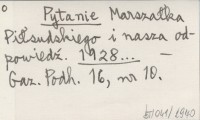 Pytanie Marszałka
Piłsudskiego i nasza od-
powiedź. 1928... —
Gaz. Podh. 16, nr 10.
1041/1940